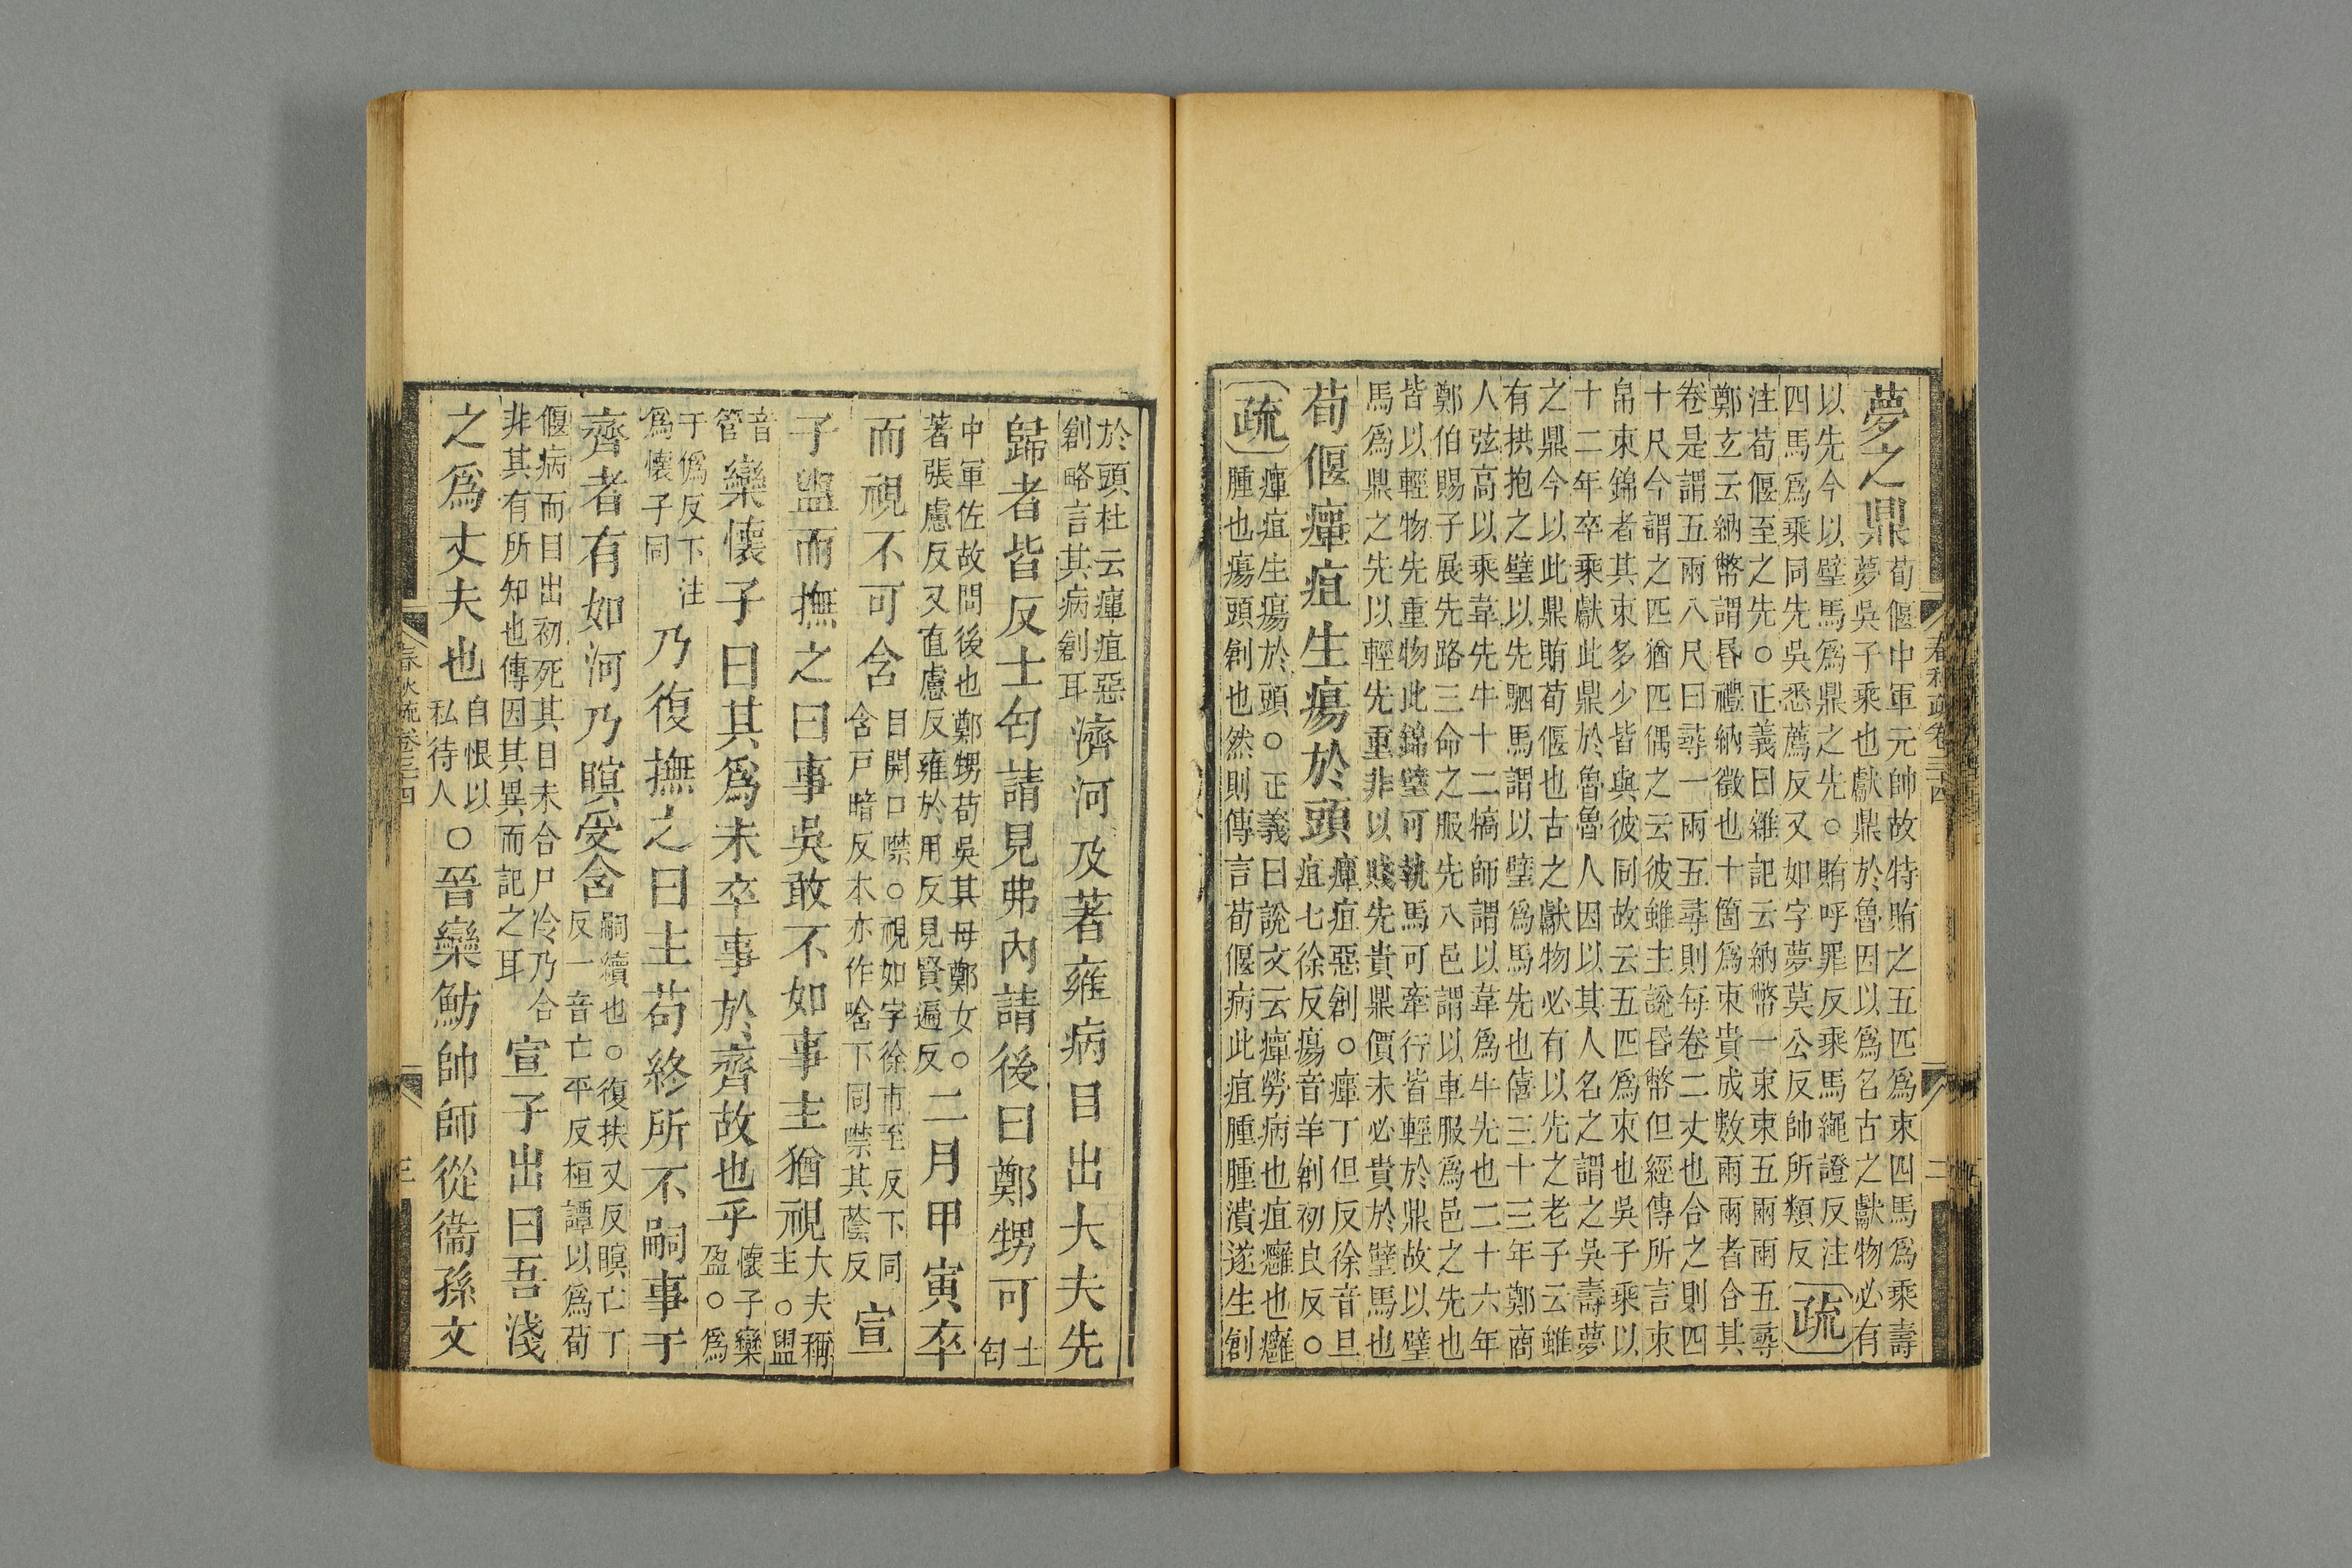 夢之鼎
荀偃中軍元帥故特賄之五匹爲束四馬爲乘壽
夢吳子乘也獻鼎於魯因以爲名古之獻物必有
以先今以璧馬爲鼎之先○賄呼罪反乘馬繩證反注
四馬爲乘同先吳悉薦反又如字夢莫公反帥所類反
疏
注荀偃至之先○正義曰雜記云納幣一束束五兩兩五尋
鄭玄云納幣謂昬禮納徵也十箇爲束貴成數兩兩者合其
卷是謂五兩八尺曰尋一兩五尋則每卷二丈也合之則四
十尺今謂之匹猶匹偶之云彼雖主說昬幣但經傳所言束
帛束錦者其束多少皆與彼同故云五匹爲束也吳子乘以
十二年卒乘獻此鼎於魯魯人因以其人名之謂之吳壽夢
之鼎今以此鼎賄荀偃也古之獻物必有以先之老子云雖
有拱抱之璧以先駟馬謂以璧爲馬先也僖三十三年鄭商
人弦高以乘韋先牛十二犒師謂以韋爲牛先也二十六年
鄭伯賜子展先路三命之服先八邑謂以車服爲邑之先也
皆以輕物先重物此錦璧可執馬可牽行皆輕於鼎故以璧
馬爲鼎之先以輕先重非以賤先貴鼎價未必貴於璧馬也
荀偃癉疽生瘍於頭
癉疽惡創○癉丁但反徐音旦
疽七徐反瘍音羊創初良反○
疏
癉疽生瘍於頭○正義曰說文云癉勞病也疽癰也癰
腫也瘍頭創也然則傳言荀偃病此疽腫腫潰遂生創
春秋疏卷三十四
二
於頭杜云癉疽惡
創略言其病創耳
濟河及著雍病目出大夫先
歸者皆反士匄請見弗內請後曰鄭甥可
士
匄
中軍佐故問後也鄭甥荀吳其母鄭女○
著張慮反又直慮反雍於用反見賢遍反
二月甲寅卒
而視不可含
目開口噤○視如字徐市至反下同
含戶暗反本亦作唅下同噤其蔭反
宣
子盥而撫之曰事吳敢不如事主猶視
大夫稱
主○盥
音
管
欒懷子曰其爲未卒事於齊故也乎
懷子欒
盈○爲
于僞反下注
爲懷子同
乃復撫之曰主苟終所不嗣事于
齊者有如河乃瞑受含
嗣續也○復扶又反瞑亡丁
反一音亡平反桓譚以爲荀
偃病而目出初死其目未合尸冷乃合
非其有所知也傳因其異而記之耳
宣子出曰吾淺
之爲丈夫也
自恨以
私待人
○晉欒魴帥師從衞孫文
春秋疏卷三十四
三